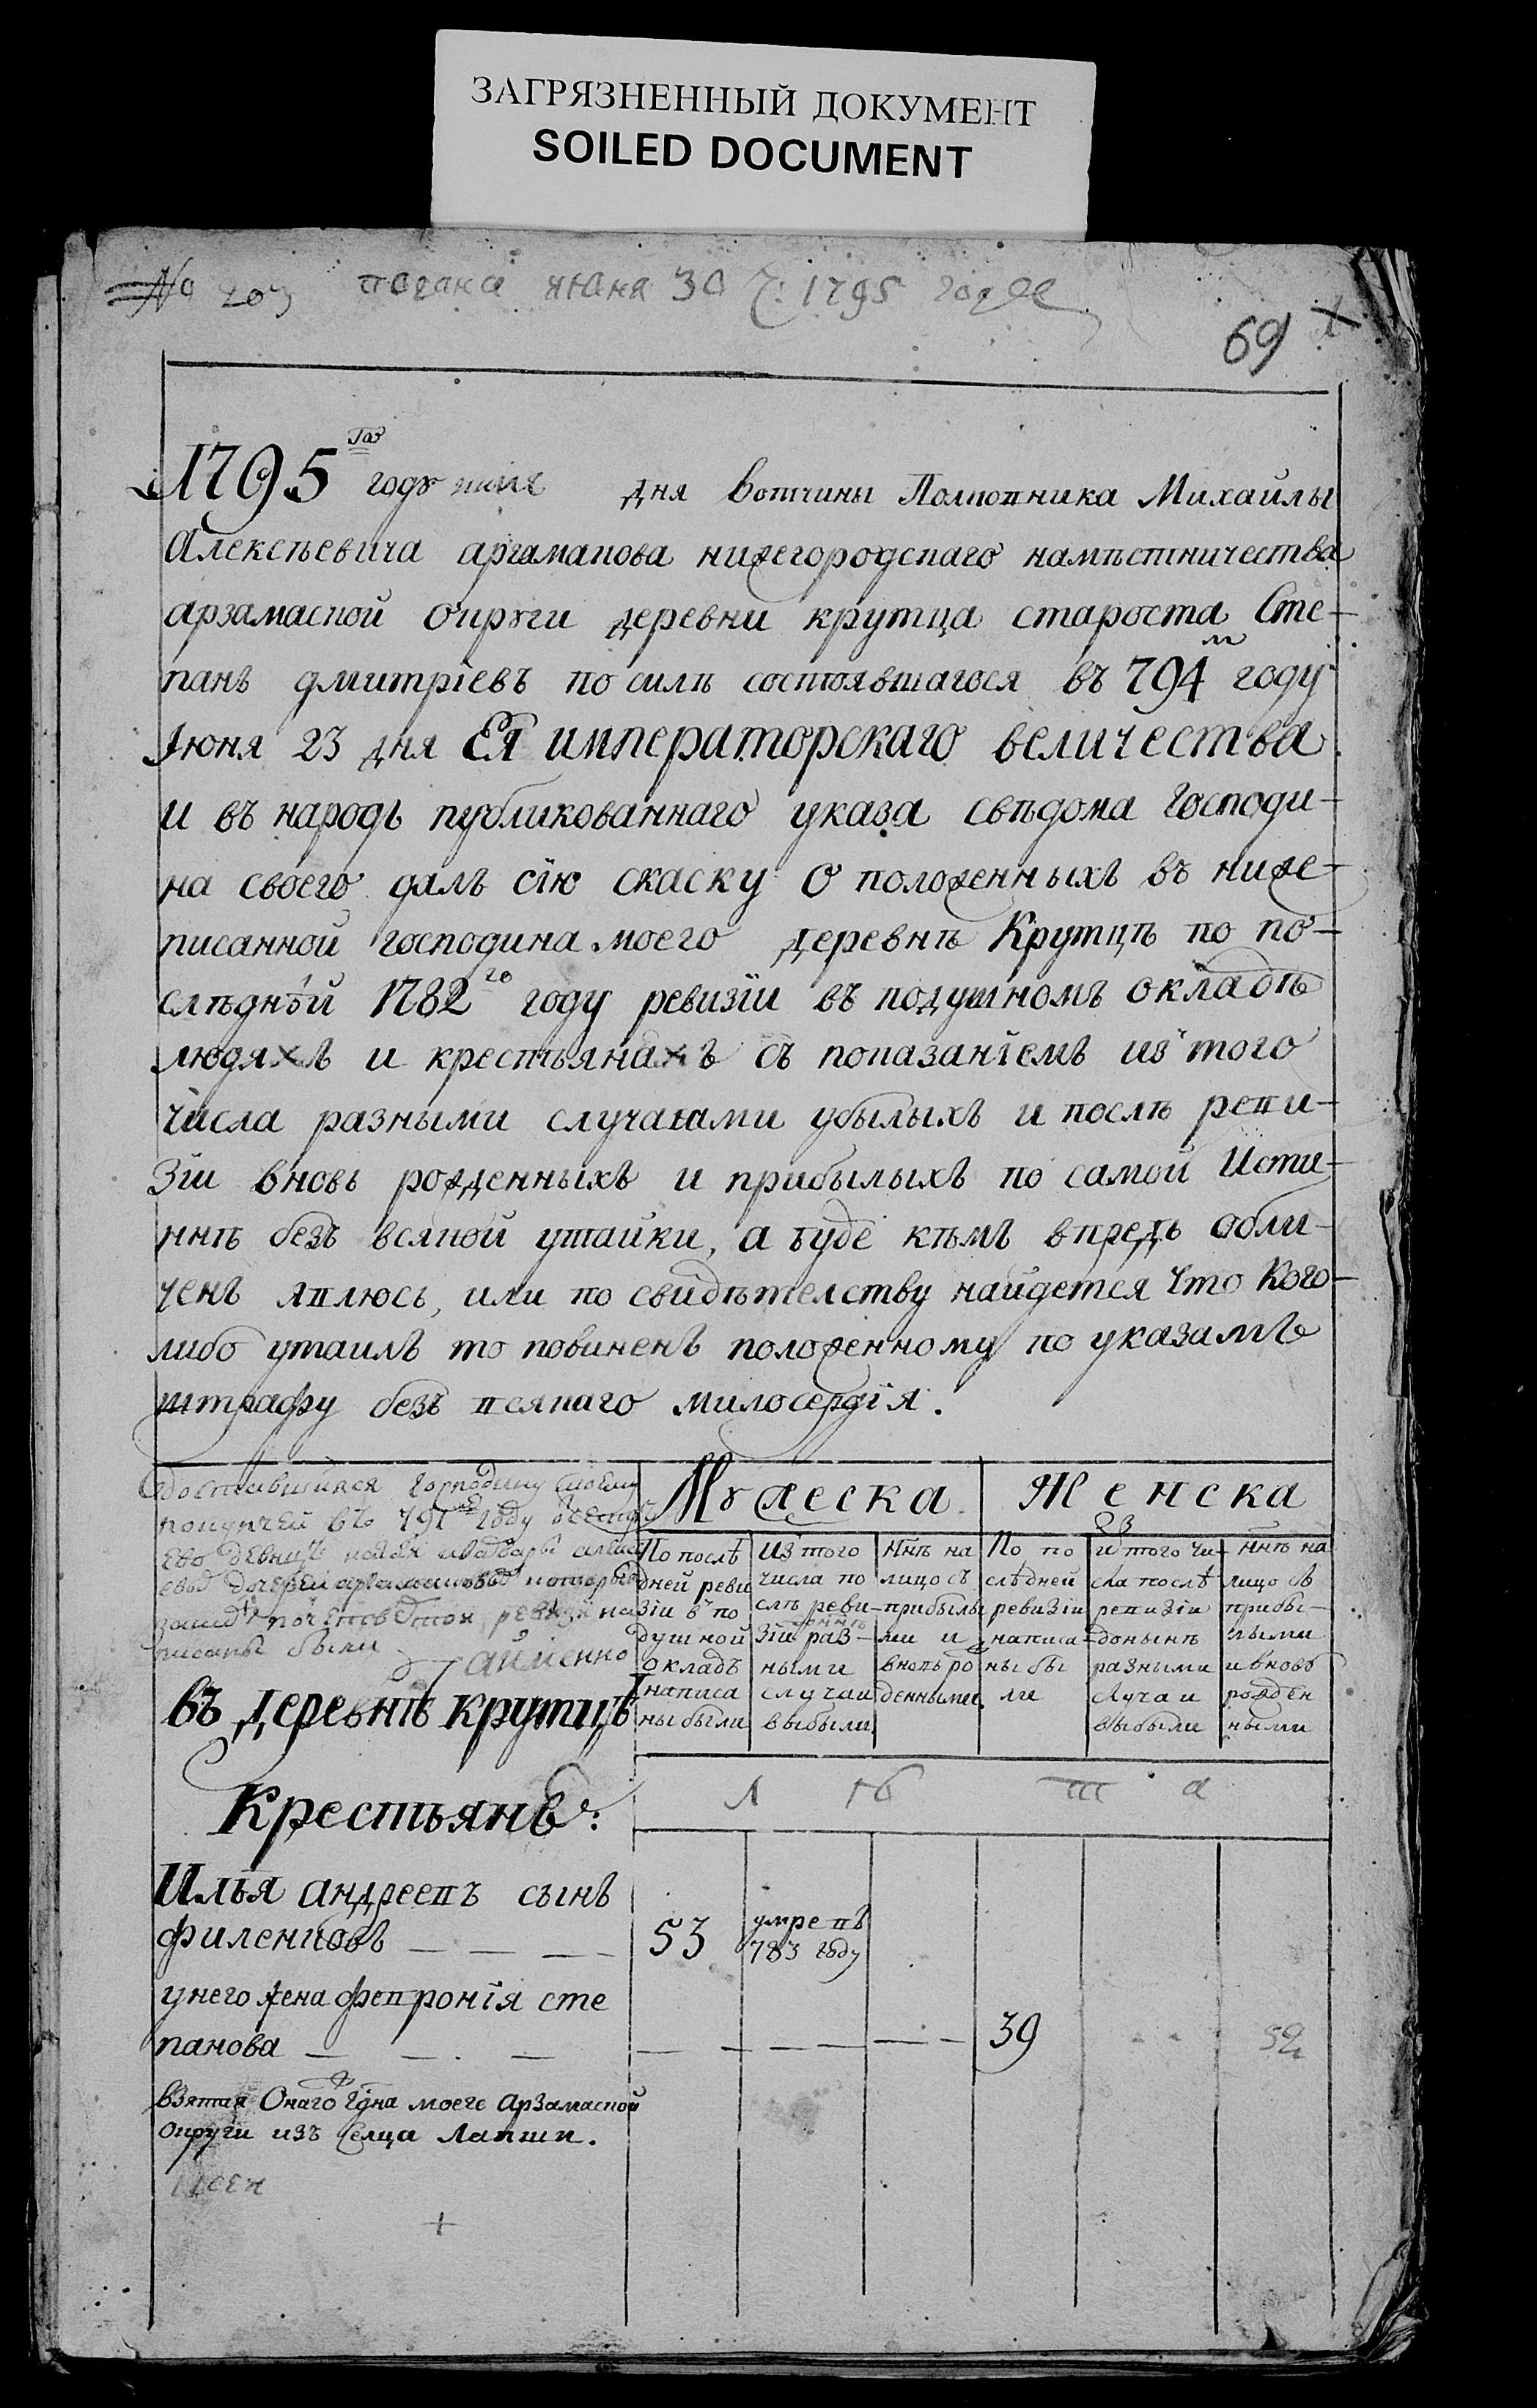 ЗАГРЯЗНЕННЫЙ ДОКУМЕНТ
SOILED DOCUMENT
№ 203 подана июня 30 ч: 1795 года
69
1795 году июня дня вотчины Полковника Михайлы
Алексѣевича аргамакова нижегородскаго намѣстничества
арзамаской округи деревни крутца староста Сте-
панъ дмитріевъ по силѣ состоявшагося въ 794м году
Іюня 23 дня Ея императорскаго величества
и въ народъ публикованнаго указа свѣдома господи-
на своего далъ сію скаску о положенныхъ въ ниже-
писанной господина моего деревнѣ Крутцѣ по по-
слѣдней 1782го году ревизіи въ подушномъ окладѣ
людяхъ и крестьянахъ съ показаніемъ изъ того
числа разными случаями убылыхъ и послѣ реви-
зіи вновь рожденныхъ и прибылыхъ по самой Исти-
ннѣ безъ всякой утайки, а буде кѣмъ впредь обли-
ченъ явлюсь, или по свидѣтелству найдется что Кого-
либо утаилъ то повиненъ положенному по указамъ
штрафу безъ всякаго милосердія.
доставшихся господину моему
покупкой въ 791м году
ево девицъ
писаны были а имянно
въ деревнѣ крутцѣ
Мужеска
Женска
По послѣ
дней реви
зіи в по
душной
окладъ
написа
ны были
Из того
числа по
слѣ реви-
зіи раз-
ными
случаи
выбыли
Ннѣ на
лицо съ
прибылы
ми и
вновь ро
жденными
По по
слѣдней
ревизіи
написа-
ны бы
ли
и того чи-
сла послѣ
ревизіи
донынѣ
разными
случаи
выбыли
Ннѣ на
лицо съ
прибы-
лыми
и вновь
рожден
ными
Л ѣ т а
Крестьянъ:
Илья андреевъ сынъ
филенковъ — — — 53 умре въ
783 году
у него жена февронія сте
панова — — — 39 52
взятая Онаго Гдна моего Арзамаской
округи изъ Селца Лапши.